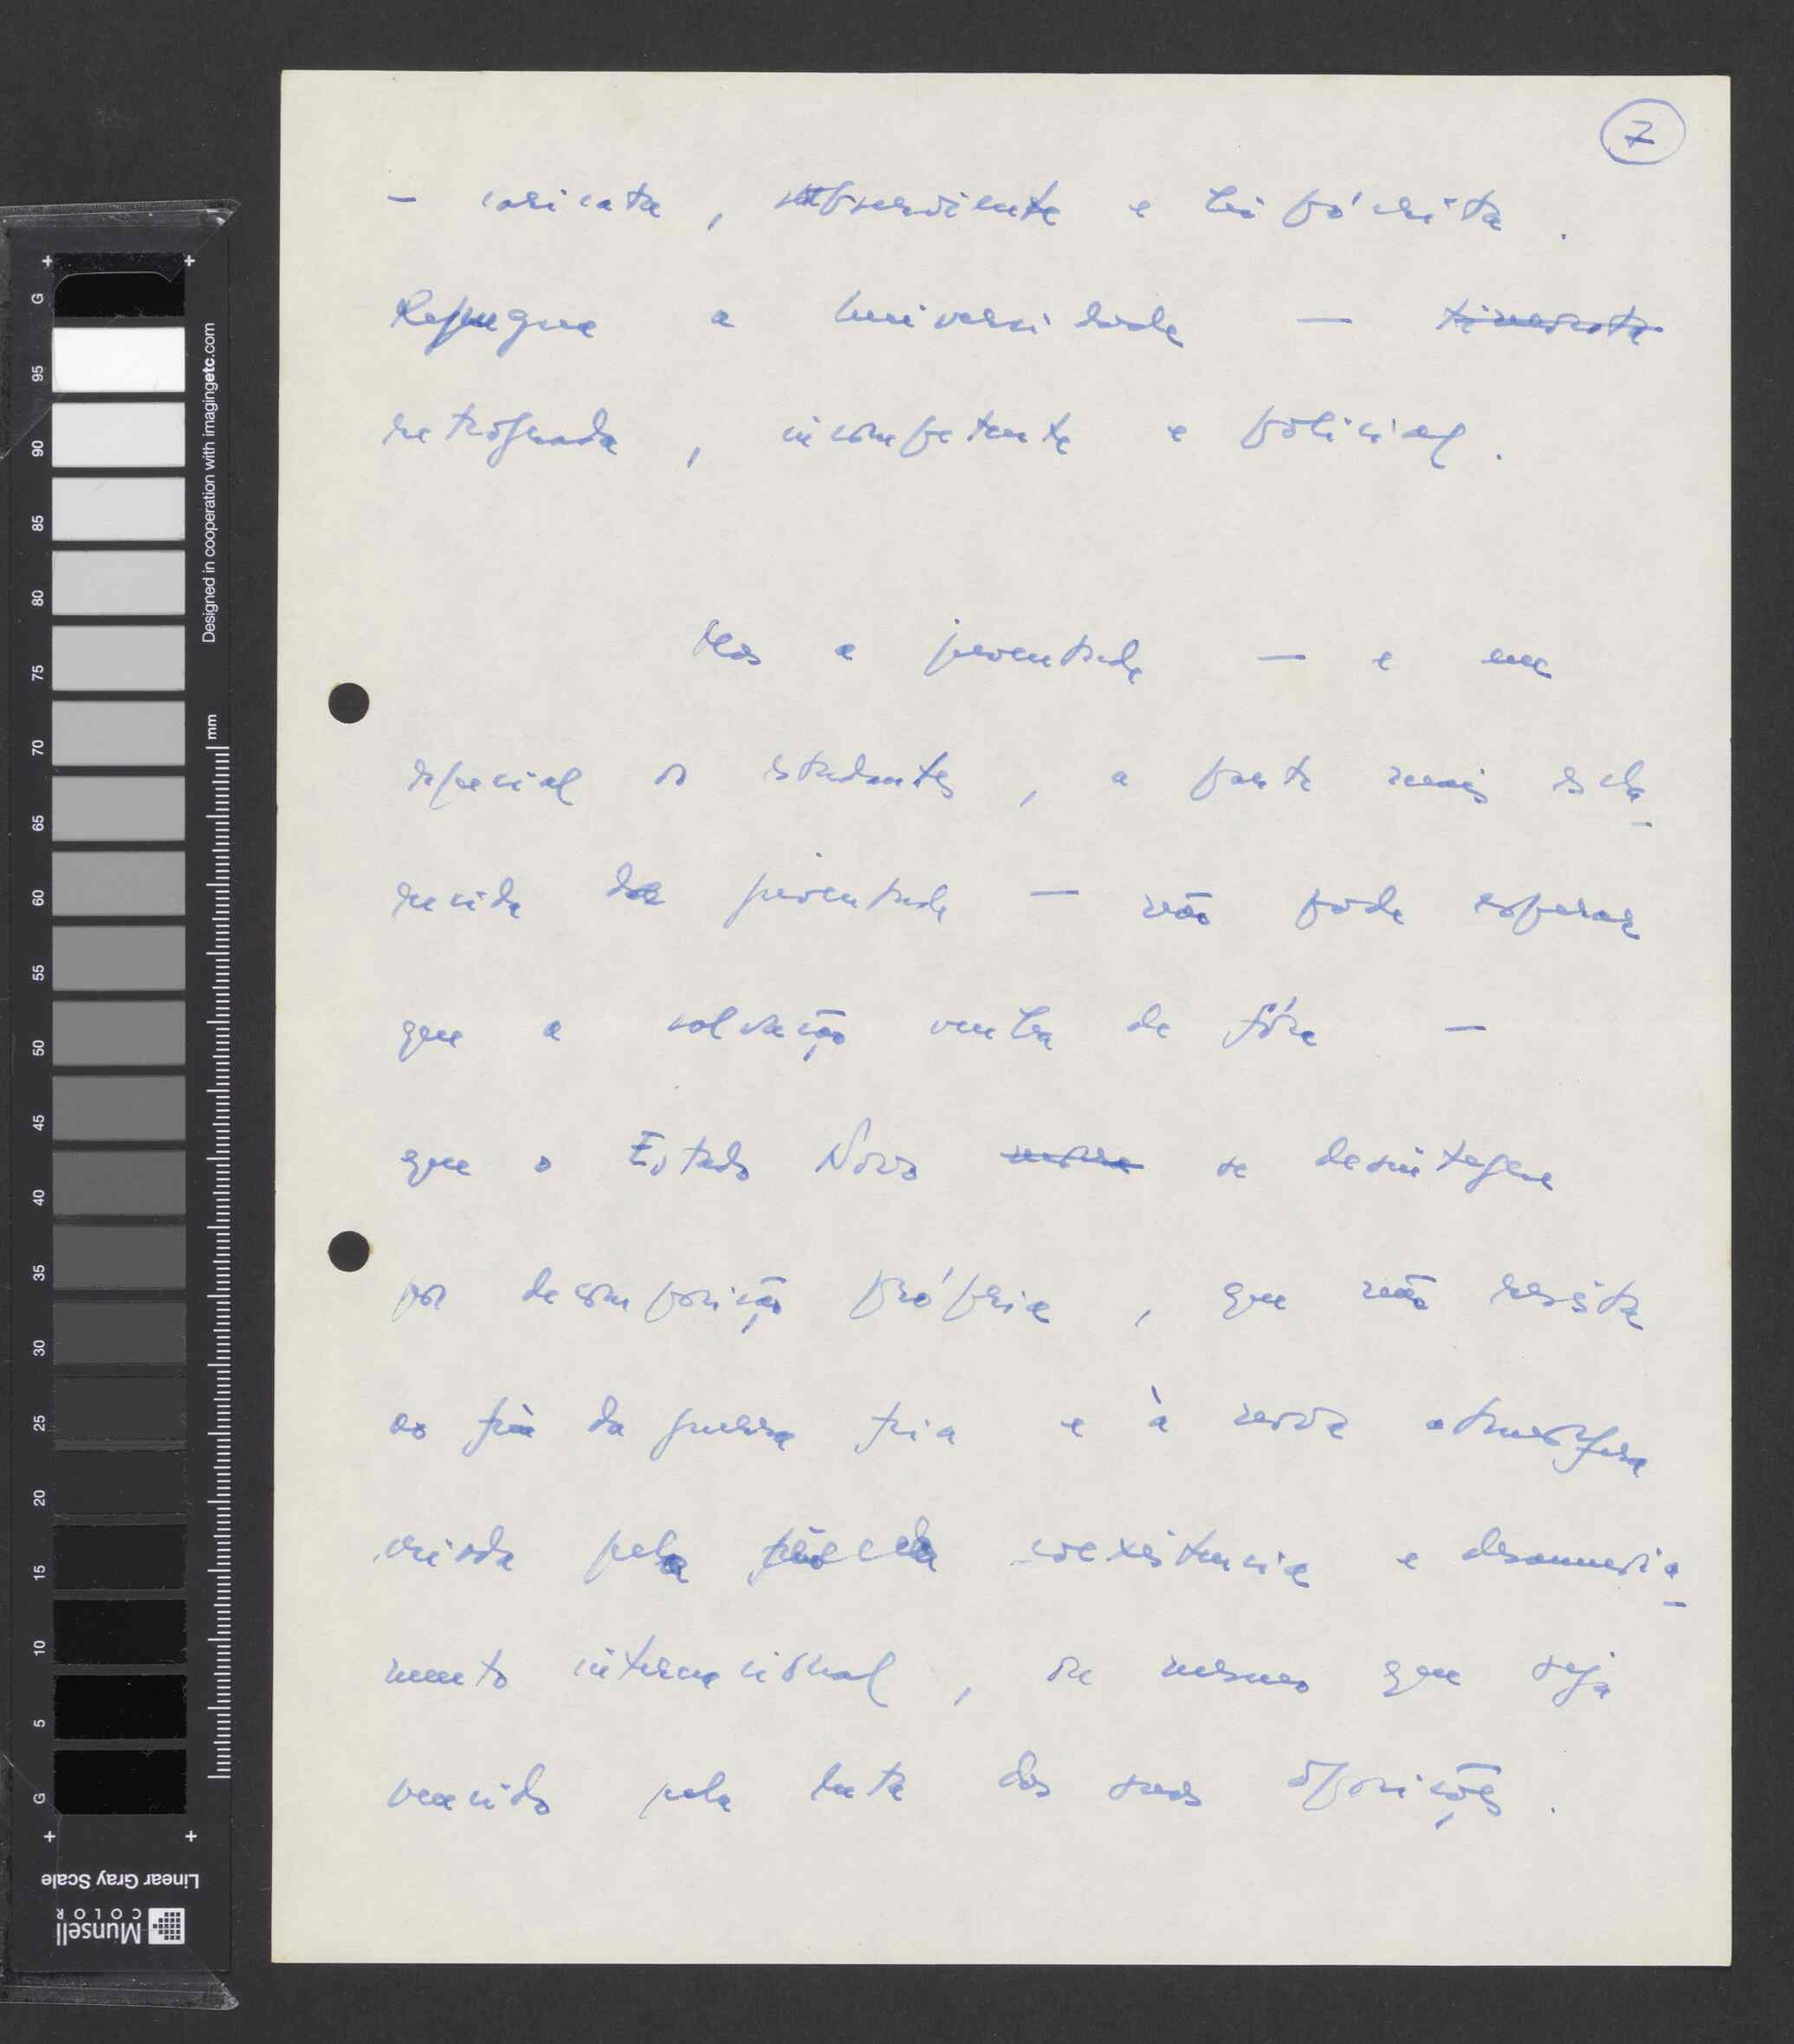 7
- caricata, subserviente e hipócrita.
Repugna a Universidade —
retrógrada, incompetente e policial.
Mas a juventude — e em
especial os estudantes, a parte mais escla-
recida da juventude — não pode esperar
que a salvação venha de fóra —
que o Estado Novo se desintegre
por decomposição própria, que não resista
ao fim da guerra fria e à nova atmosfera
criada pela coexistencia e desanuvia-
mento internacional, ou mesmo que seja
vencido pela luta das suas oposições.
G
95
90
85
80
75
70
65
60
55
50
45
40
35
30
25
20
15
10
5
G
Designed in cooperation with imagingetc.com
mm
Linear Gray Scale
Munsell
COLOR